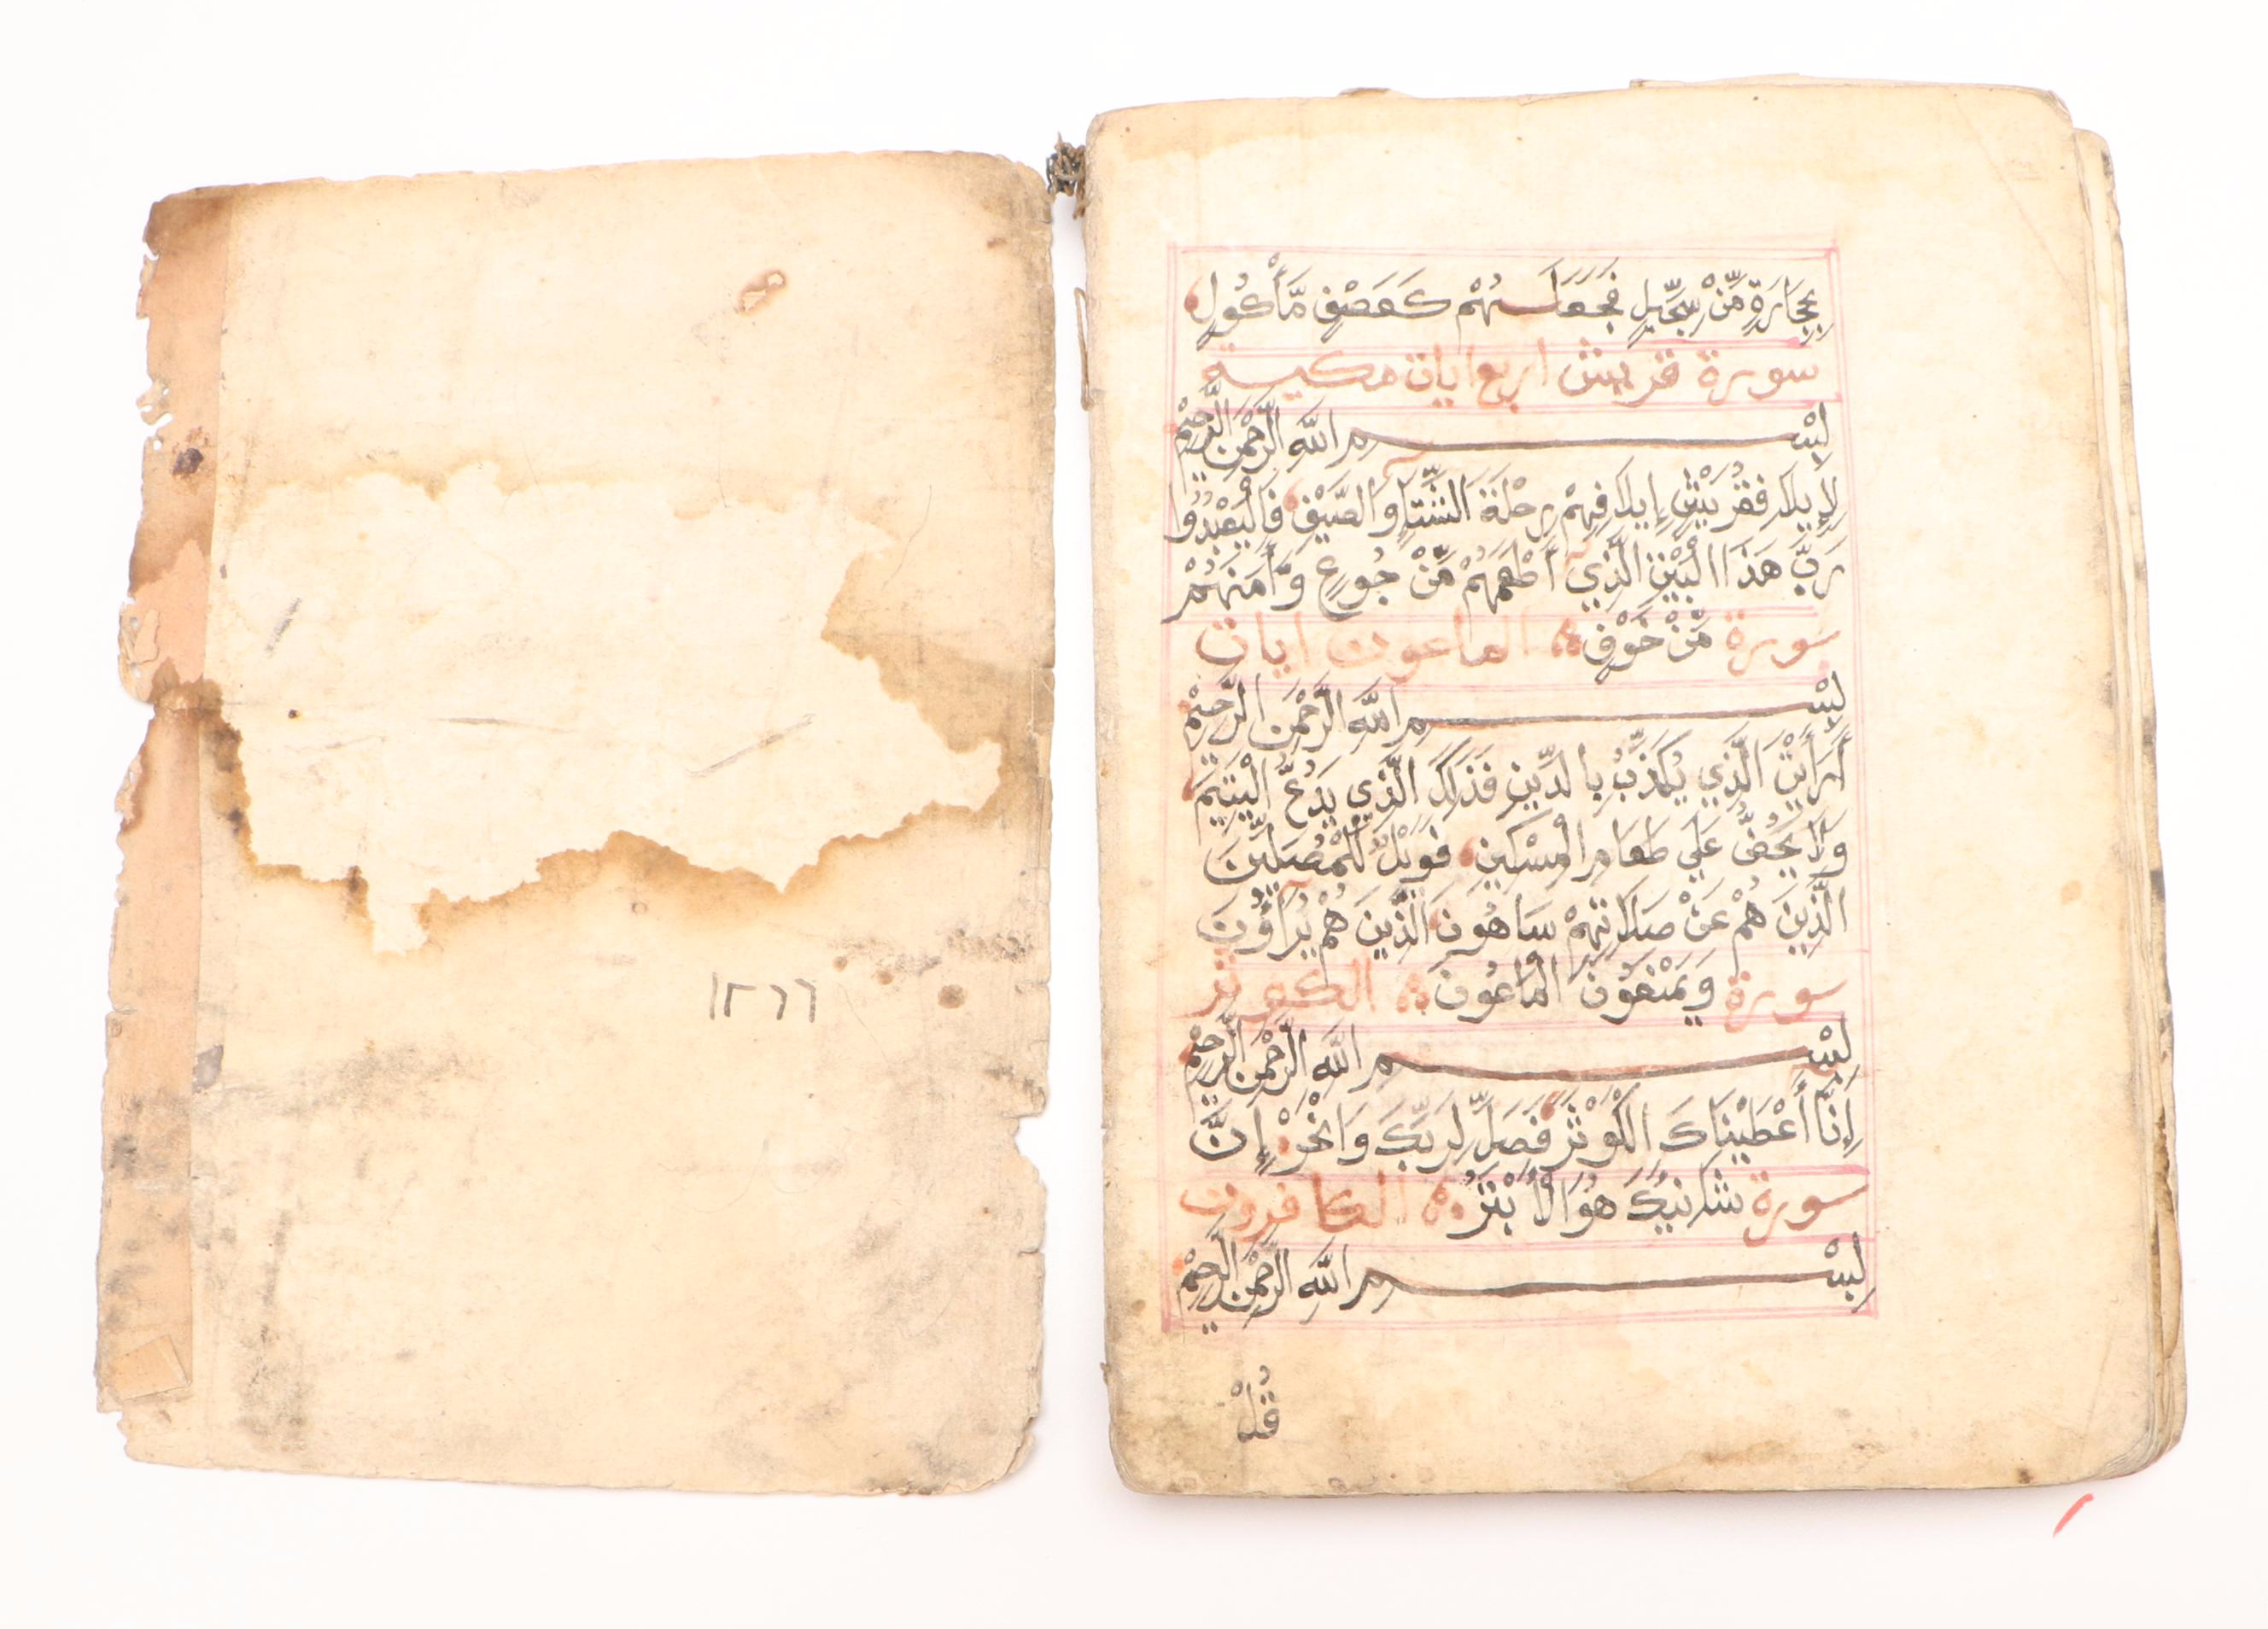 بِحِجَارَةٍ مِّنْ سِجِّيلٍ فَجَعَلَهُمْ كَعَصْفٍ مَّأْكُولٍ
سورة قريش اربع ايات مكية
بِسْمِ اللَّهِ الرَّحْمَنِ الرَّحِيمِ
لِإِيلَافِ قُرَيْشٍ إِيلَافِهِمْ رِحْلَةَ الشِّتَآءِ وَالصَّيْفِ فَالْيَعْبُدُوا
رَبَّ هَذَا الْبَيْتِ الَّذِي أَطْعَمَهُمْ مِّنْ جُوعٍ وَّأَمَنَهُمْ
سورة مِّنْ خَوْفٍ الماعون ايات
بِسْمِ اللَّهِ الرَّحْمَنِ الرَّحِيمِ
أَرَأَيْتَ الَّذِي يُكَذِّبُ بِالدِّينِ فَذَلِكَ الَّذِي يَدُعُّ الْيَتِيمَ
وَلَا يَحُضُّ عَلَى طَعَامِ الْمِسْكِينِ فَوَيْلٌ لِّلْمُصَلِّينَ
الَّذِينَ هُمْ عَنْ صَلَاتِهِمْ سَاهُونَ الَّذِينَ هُمْ يُرَآؤُنَ
سورة وَيَمْنَعُونَ الْمَاعُونَ الكوثر
بِسْمِ اللَّهِ الرَّحْمَنِ الرَّحِيمِ
إِنَّا أَعْطَيْنَاكَ الْكَوْثَرَ فَصَلِّ لِرَبِّكَ وَانْحَرْ إِنَّ
سورة شَانِئَكَ هُوَ الْأَبْتَرُ الكافرون
بِسْمِ اللَّهِ الرَّحْمَنِ الرَّحِيمِ
قُلْ
١٢٦٦